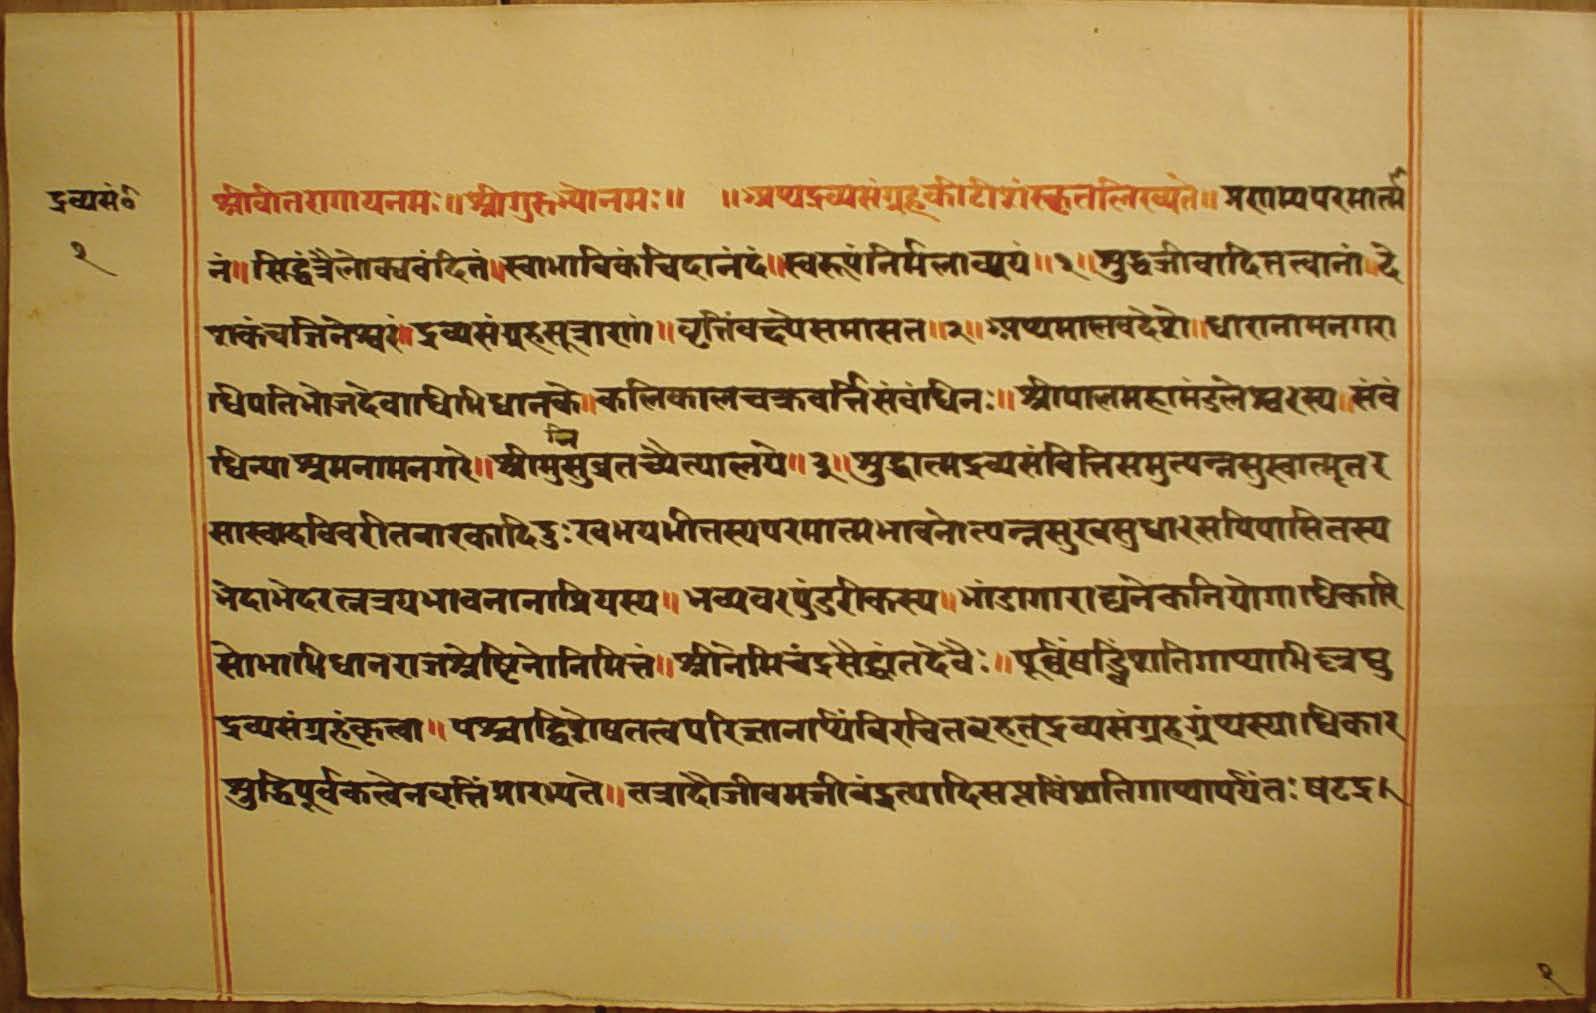 द्रव्यसं॰
१
श्रीवीतरागायनमः॥ श्रीगुरुभ्योनमः॥ ॥अथद्रव्यसंग्रहकीटीशंस्कृतलिख्यते॥ प्रणम्यपरमात्मा
नं॥ सिद्धंत्रैलोक्यवंदितं॥ स्वाभाविकंचिदानंदं॥ स्वरूपंनिर्मलाव्ययं॥१॥ शुद्धजीवादितत्वानां॥ दे
शकंचजिनेश्वरं॥ द्रव्यसंग्रहसूत्राणां॥ वृत्तिंवक्ष्येसमासत॥२॥ अथमालवदेशे॥ धारानामनगरा
धिपतिभोजदेवाधिभिधानके॥ कलिकालचक्रवर्त्तिसंबंधिनः॥ श्रीपालमहामंडलेश्वरस्य॥ संबं
धिन्याश्रमनामनगरे॥ श्रीमुनिसुव्रतच्यैत्यालये॥३॥ शुद्धात्मद्रव्यसंवित्तिसमुत्पन्नसुस्वात्मृतर
सास्वादविवरीतनारकादिदुःखभयभीतस्यपरमात्मभावनोत्पन्नसुखसुधारसपिपासितस्य
भेदाभेदरत्नत्रयभावनानाप्रियस्य॥ भव्यवरपुंडरीकस्य॥ भांडागाराद्यनेकनियोगाधिकारि
सोभाभिधानराजश्रेष्टिनोनिमित्तं॥ श्रीनेमिचंद्रसैद्धांतदेवैः॥ पूर्वंषड्विंशतिगाथाभिल्लघु
द्रव्यसंग्रहंकृत्वा॥ पश्चाद्विशेषतत्वपरिज्ञानार्थंविरचितवृहतद्रव्यसंग्रहग्रंथस्याधिकार
शुद्धिपूर्वकत्वेनवृत्तिंप्रारभ्यते॥ तत्रादौजीवमजीवंद्रत्यादिसप्तविंशतिगाथापर्यंतः षटद्र
१